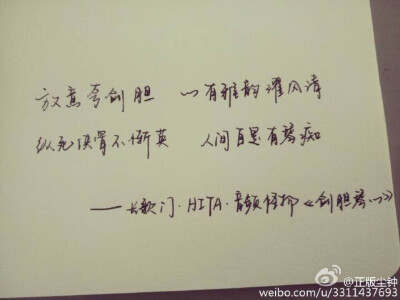 放意夸剑胆 心有雅韵濯风清
纵死侠骨不惭英 人间自是有琴痴
——长歌门·HITA·音频怪物《剑胆琴心》
@正版尘钟
weibo.com/u/3311437693